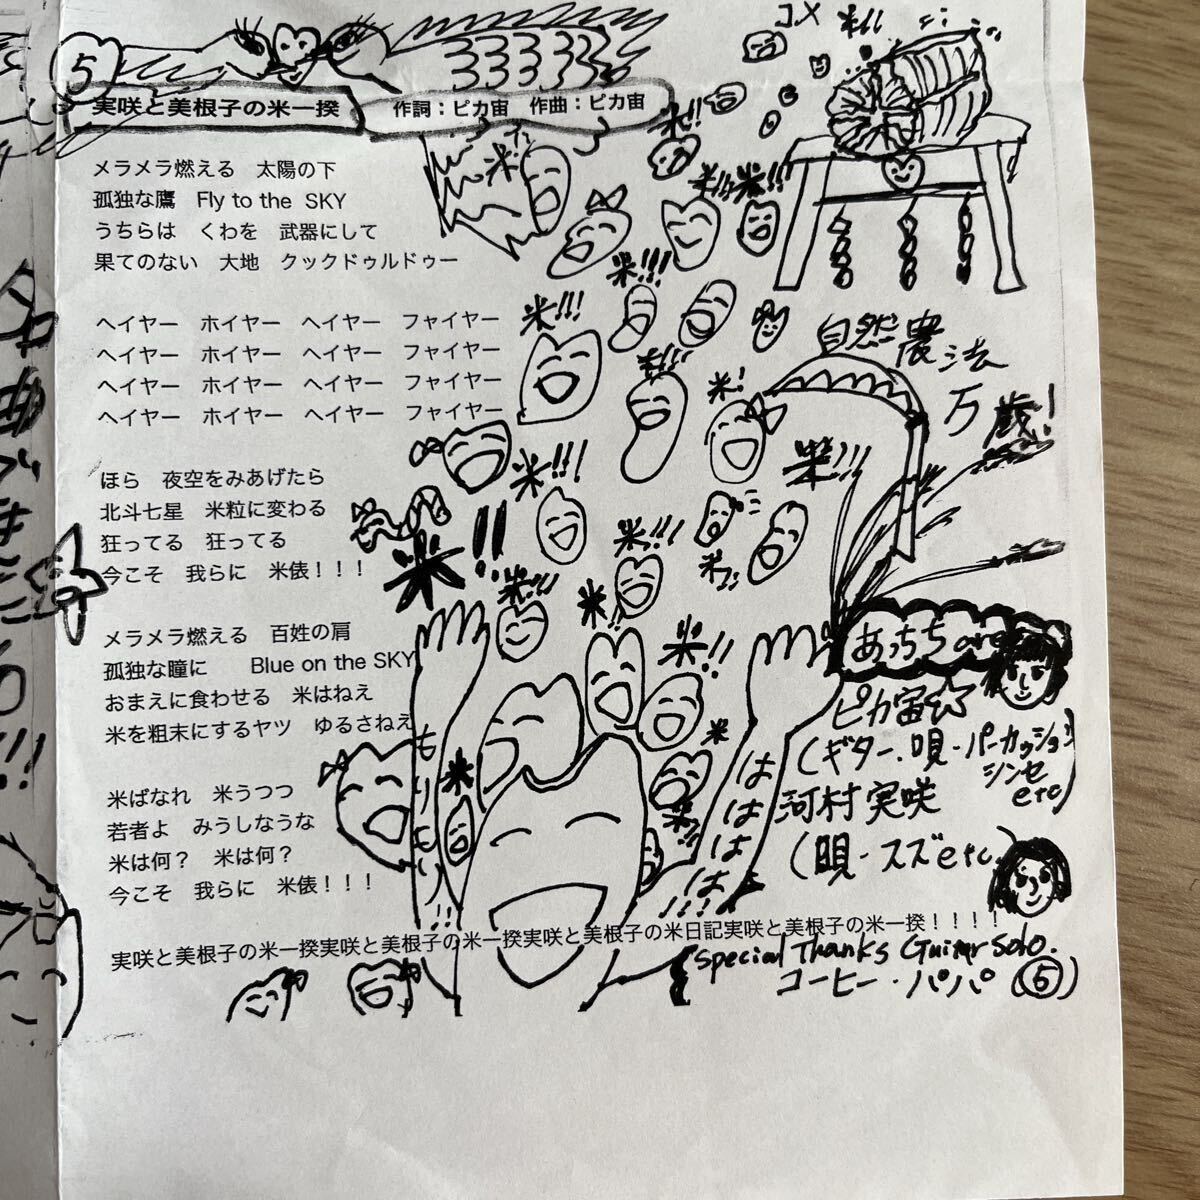 5
実咲と美根子の米一揆
作詞：ピカ宙　作曲：ピカ宙
メラメラ燃える　太陽の下
孤独な鷹　Fly to the SKY
うちらは　くわを　武器にして
果てのない　大地　クックドゥルドゥー
ヘイヤー　ホイヤー　ヘイヤー　ファイヤー
ヘイヤー　ホイヤー　ヘイヤー　ファイヤー
ヘイヤー　ホイヤー　ヘイヤー　ファイヤー
ヘイヤー　ホイヤー　ヘイヤー　ファイヤー
ほら　夜空をみあげたら
北斗七星　米粒に変わる
狂ってる　狂ってる
今こそ　我らに　米俵！！！
メラメラ燃える　百姓の肩
孤独な瞳に　Blue on the SKY
おまえに食わせる　米はねえ
米を粗末にするヤツ　ゆるさねえ
米ばなれ　米うつつ
若者よ　みうしなうな
米は何？　米は何？
今こそ　我らに　米俵！！！
実咲と美根子の米一揆実咲と美根子の米一揆実咲と美根子の米日記実咲と美根子の米一揆！！！！
コメ
米!!!
米!!
米!!!
米!!!
米!!!
米!!!
米!!!
米!
米!!!
米!!!
米!!
米!!!
米!!!
米
米!!
米
米
自然農法
万歳！
もりもり!!
はははは!!!
あっちarea
ピカ宙☆
(ギター、唄・パーカッション
シンセ
etc)
河村実咲
(唄・スズetc.
Special Thanks Guitar Solo.
コーヒー・パパ (5)